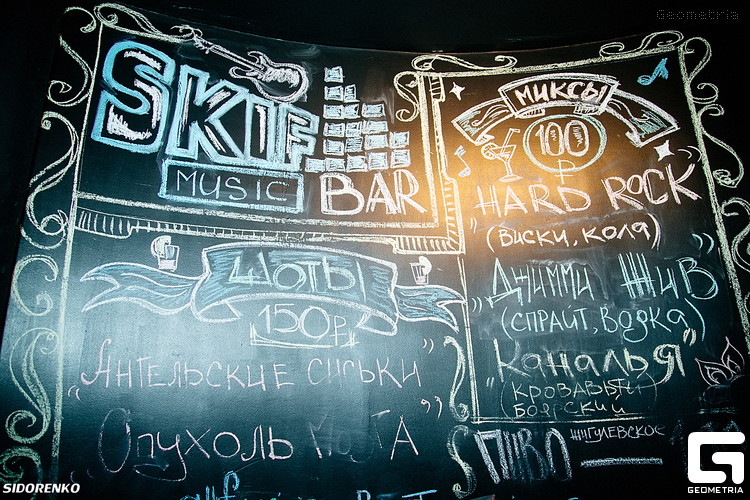 Geometria
SKIF
MUSIC BAR
ШОТЫ
150р
"Ангельские сиськи"
"Опухоль мозга"
МИКСЫ
100
р
HARD ROCK
(виски, кола)
"Джимми жив"
(спрайт, водка)
"Каналья"
(кровавый
боярский
ПИВО Жигулевское
SIDORENKO
GEOMETRIA